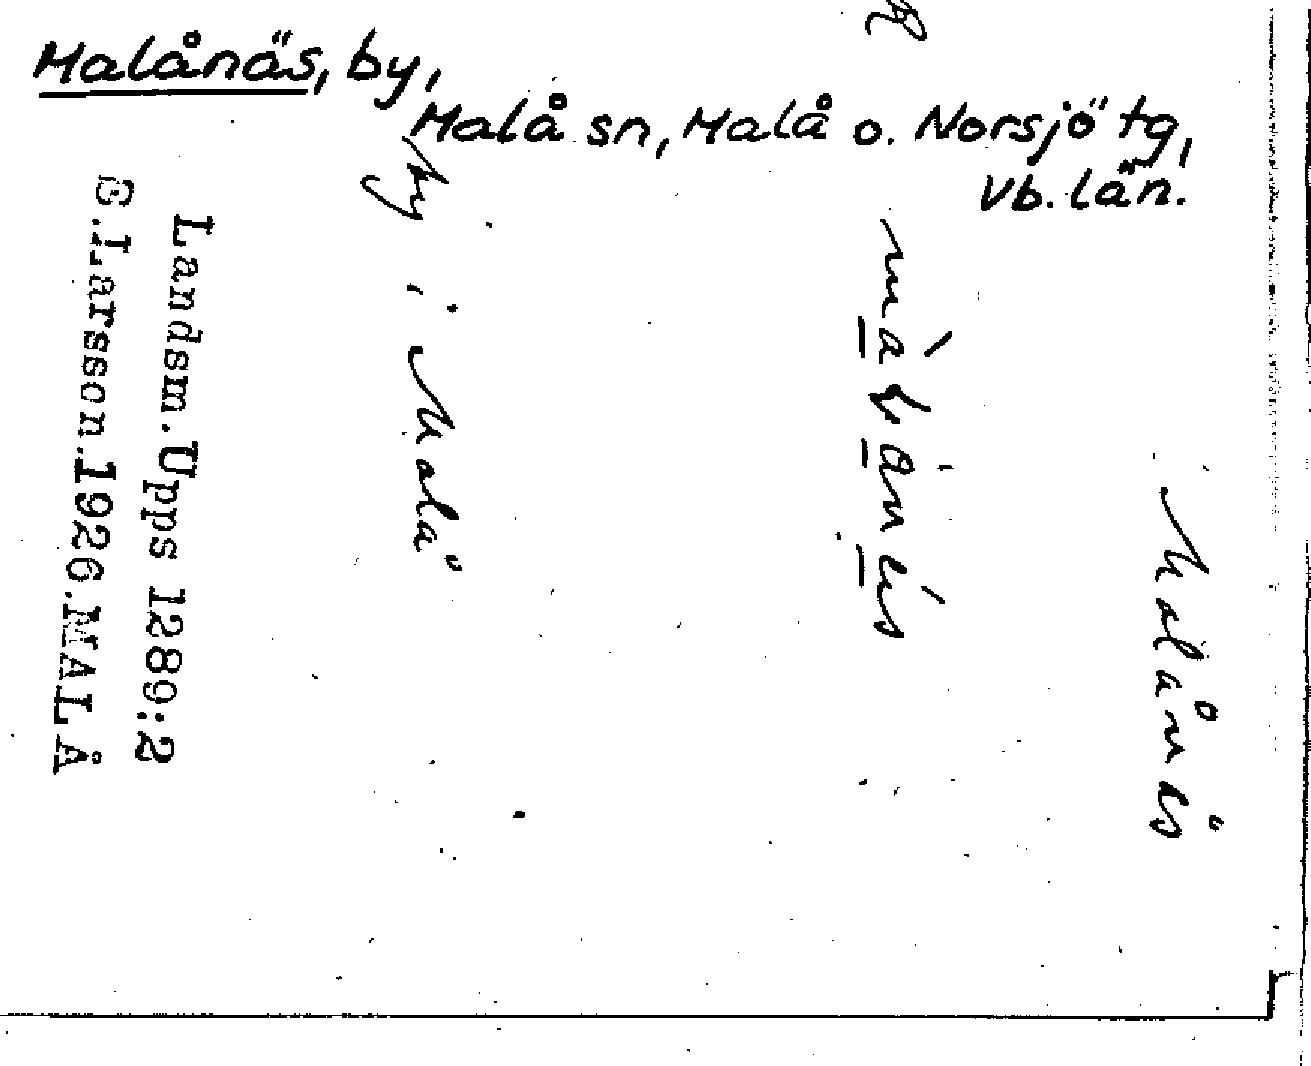 Malånäs, by,
Malå sn, Malå o. Norsjö tg,
Vb. län.
Malånäs
by i Malå
Landsm. Upps 1289:2
E.Larsson.1926.MALÅ